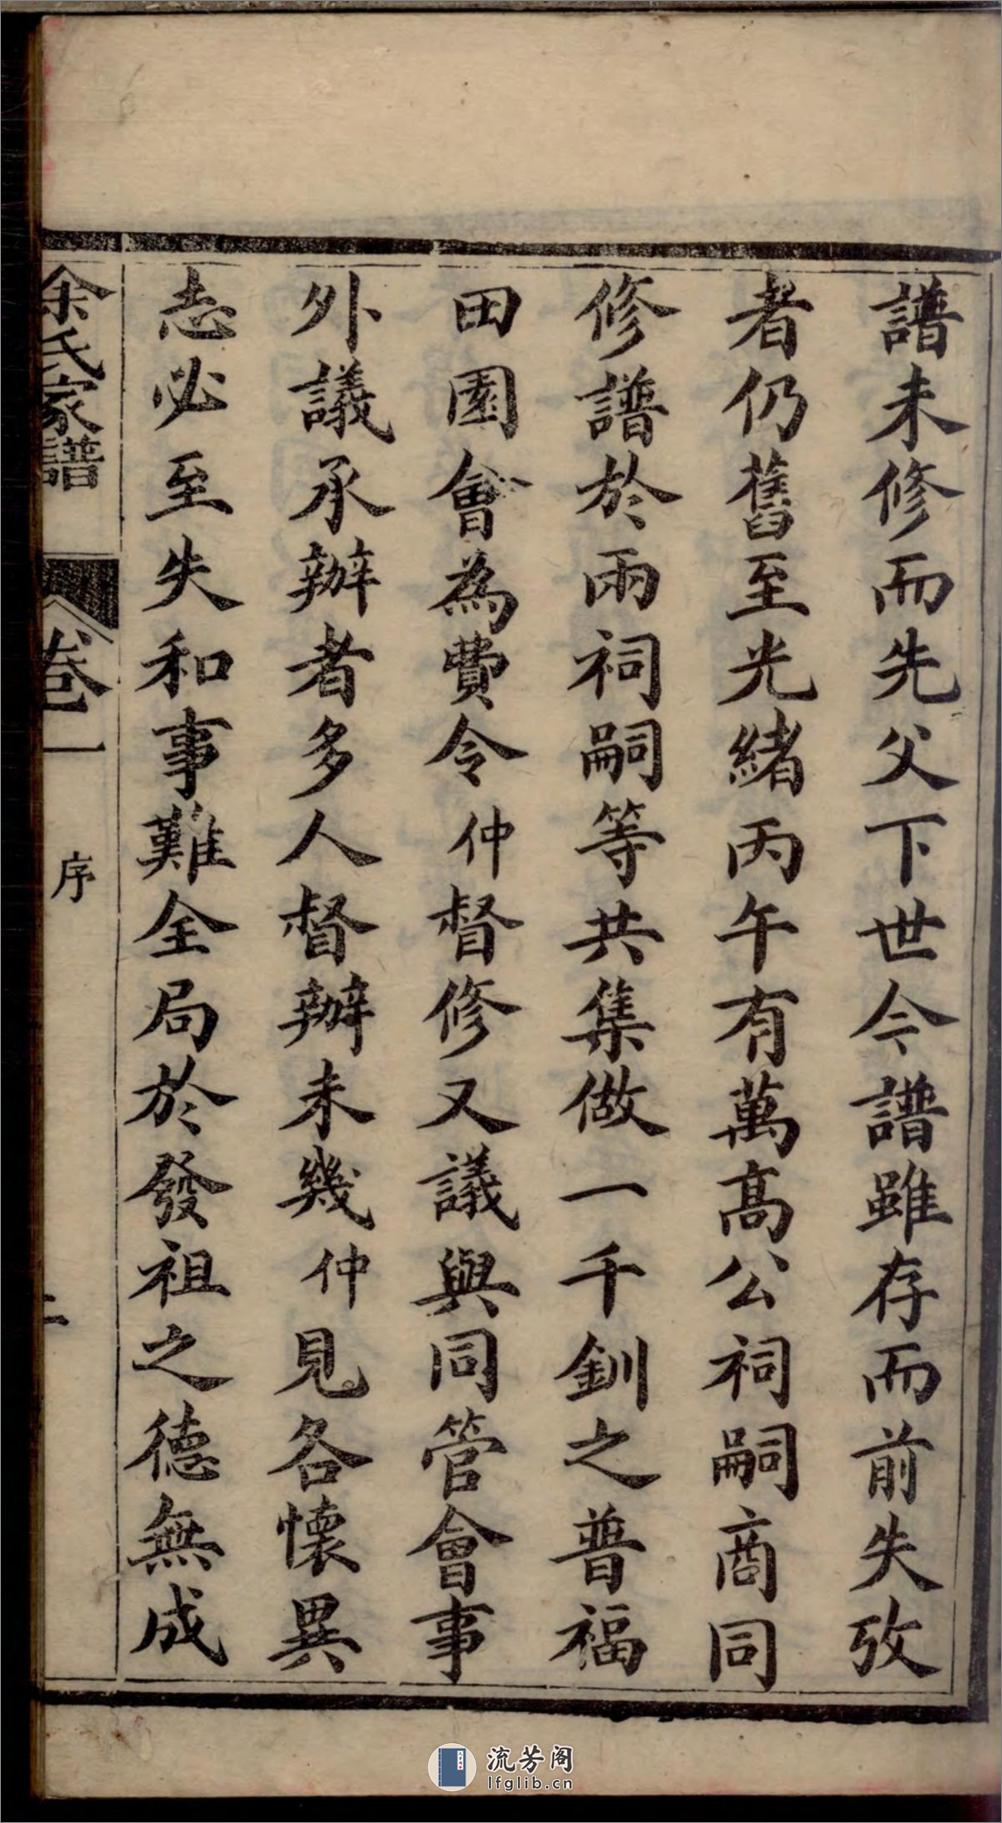 譜未修而先父下世今譜雖存而前失攷
者仍舊至光緒丙午有萬髙公祠嗣商同
修譜於兩祠嗣等共集做一千釧之普福
田園會為費令仲督修又議與同管會事
外議承辦者多人督辦未幾仲見各懷異
志必至失和事難全局於發祖之德無成
余氏家譜
卷一
序
二
流芳阁
lfglib.cn